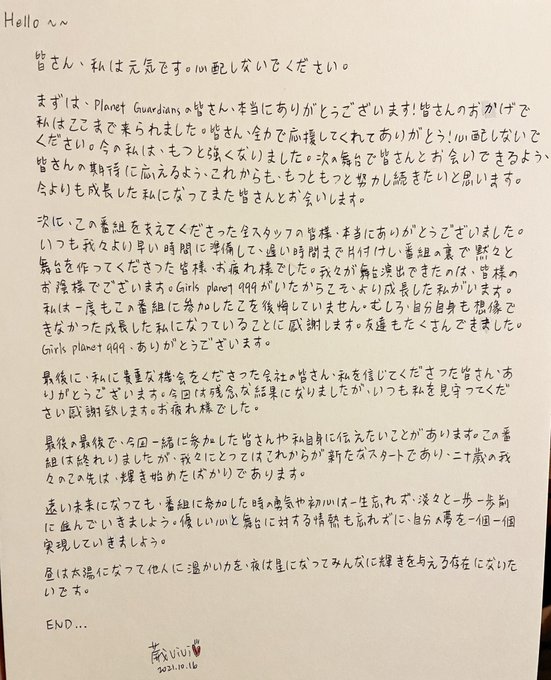 Hello ~~
皆さん、私は元気です。心配しないでください。
まずは、Planet Guardiansの皆さん、本当にありがとうございます!皆さんのおかげで
私はここまで来られました。皆さん、全力で応援してくれてありがとう!心配しないで
ください。今の私は、もっと強くないました。次の舞台で皆さんとお会いできるよう、
皆さんの期待に広えるよう、これからも、もっともっと努力し続きたいと思います。
今よりも成長した私になってまた皆さんとお会いします。
次に、この番組を支えてくださった全スタッフの皆様、本当にありがとうございました。
いつも我々より早い時間に準備して、遅い時間まで片付けし、番組の裏で黙々と
舞台を作ってくださった皆様、お疲れ様でした。我々が舞台演出できたのは、皆様の
お陰様でございます。Girls planet 999がいたからこそ、より成長した私がいます。
私は一度もこの番組に参加したこを後悔していません。むしろ、自分自身も想像で
きなかった成長した私になっていることに感謝します。友達もたくさんできました。
Girls planet 999、ありがとうございます。
最後に、私に貴重な機会をくださった会社の皆さん、私を信じてくださった皆さん、あ
りがとうございます。今回は残念な結果になりましたが、いつも私を見守ってくだ
さい感謝致します。お疲れ様でした。
最後の最後で、今回一緒に参加した皆さんや私自身に伝えたいことがあります。この番
組は終れりましたが、我々にとってはこれからが新たなスタートであり、二十歳の我
々のこの先は、輝き始めたばかりであります。
遠い未来になっても、番組に参加した時の勇気や初心は一生忘れず、淡々と一歩一歩前
に進んでいきましよう。優しい心と舞台に対する情熱も忘れずに、自分の夢を一個一個
実現していきましよう。
昼は太陽になって他人に温かい力を、夜は星になってみんなに輝きを与える存在にないた
いです。
END...
ViVi
2021.10.16